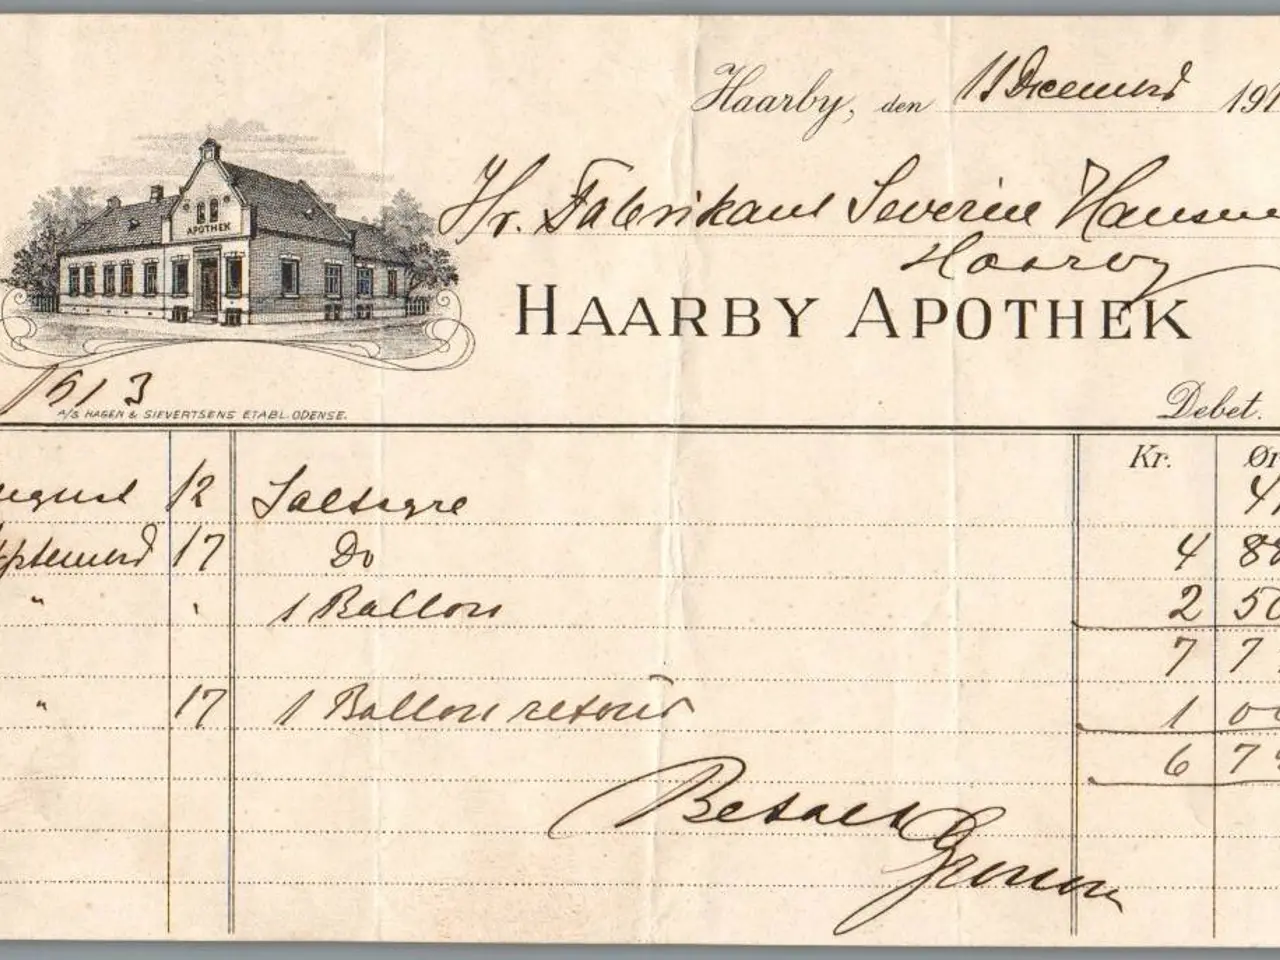 Haarby, den 11 Decembr 191
Hr. Fabrikant Severin Hansen
Haarby
APOTHEK
HAARBY APOTHEK
1913
A/S HAGEN & SIEVERTSENS ETABL. ODENSE.
Debet.
Kr. Ør
August 12 Saltsyre 4
Septembr 17 Do 4 88
" " 1 Ballon 2 50
7 7
" 17 1 Ballon retour 1 00
6 7
Betalt